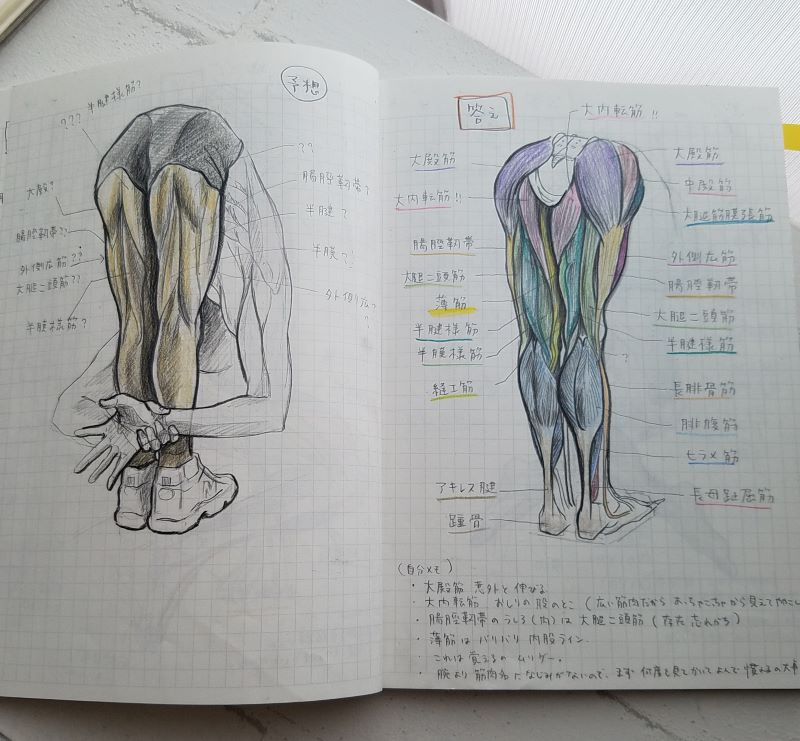 予想
半腱様筋?
???
大殿?
腸脛靭帯??
外側広筋??
大腿二頭筋??
半膜様筋?
??
腸脛靭帯?
半腱?
半膜?
外側広?
?
答え
大内転筋!!
大殿筋
大内転筋!!
腸脛靭帯
大腿二頭筋
薄筋
半腱様筋
半膜様筋
縫工筋
アキレス腱
踵骨
大殿筋
中殿筋
大腿筋膜張筋
外側広筋
腸脛靭帯
大腿二頭筋
半腱様筋
?
長腓骨筋
腓腹筋
ヒラメ筋
長母趾屈筋
(自分メモ)
・大殿筋 意外と伸びる
・大内転筋 おしりの股のとこ (広い筋肉だから あっちゃこっちゃから見えてややこし
・腸脛靭帯のうしろ(内)は大腿二頭筋 (存在忘れがち)
・薄筋はバリバリ内股ライン.
・これは覚えるの ムリゲー。
・腕より筋肉名になじみがないので、まず 何度も見てかいてよんで 慣れるの大事